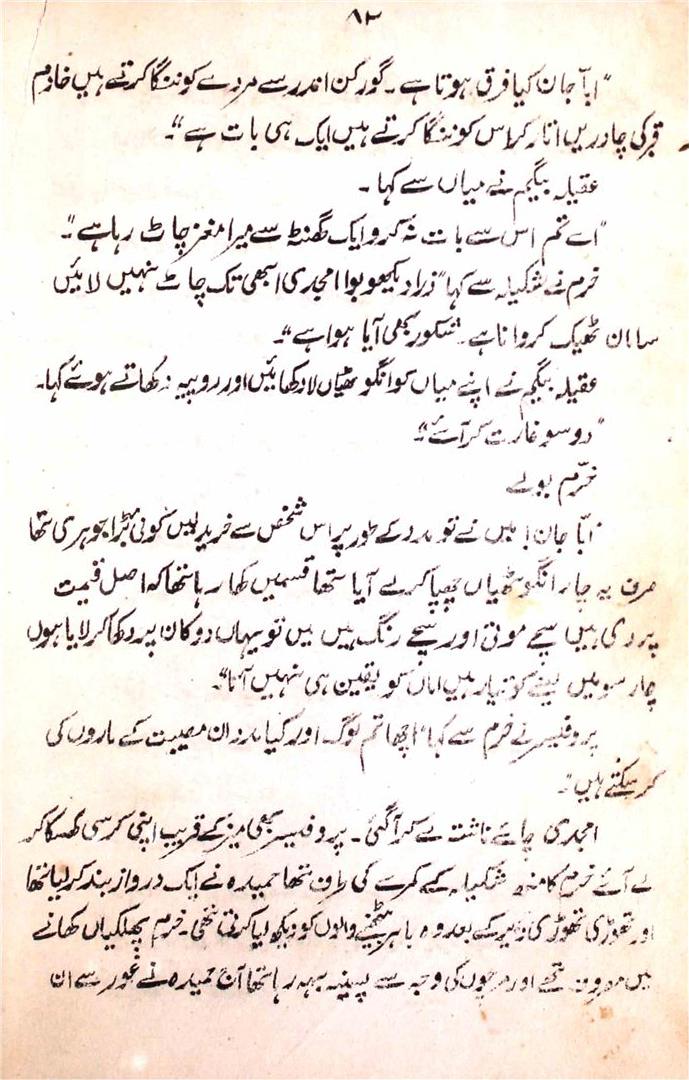 ۸۳
"ابّا جان کیا فرق ہوتا ہے۔ گورکن اندر سے مردے کو ننگا کرتے ہیں خادم
قبر کی چادریں اتار کر اس کو ننگا کرتے ہیں ایک ہی بات ہے"۔
عقیلہ بیگم نے میاں سے کہا۔
"اے تم اس سے بات نہ کرو ایک گھنٹہ سے میرا مغز چاٹ رہا ہے"۔
خرم نے شکیلہ سے کہا "ذرا دیکھو بوا امجدی ابھی تک چاٹ نہیں لائیں
سامان ٹھیک کروانا ہے۔ شکور بھی آیا ہوا ہے"۔
عقیلہ بیگم نے اپنے میاں کو انگوٹھیاں لا دکھائیں اور روپیہ دکھاتے ہوئے کہا۔
"دو سو غارت کر آئے"۔
خرّم بولے
ابّا جان! میں نے تو مدد کے طور پر اس شخص سے خریدیں کوئی بڑا جوہری تھا
صرف یہ چار انگوٹھیاں چھپا کر لے آیا تھا قسمیں کھا رہا تھا کہ اصل قیمت
پر دی ہیں سچے موتی اور سچے رنگ ہیں میں تو یہاں دوکان پر دکھا کر لایا ہوں
چار سو میں لینے کو تیار ہیں اماں کو یقین ہی نہیں آتا"۔
پروفیسر نے خرم سے کہا "اچھا تم لوگ اور کیا مدد ان مصیبت کے ماروں کی
کر سکتے ہیں"۔
امجدی چائے ناشتہ لے کر آگئی۔ پروفیسر بھی میز کے قریب اپنی کرسی کھسکا کر
لے آئے خرم کا منھ شکیلہ کے کمرے کی طرف تھا حمیدہ نے ایک دروازہ بند کر لیا تھا
اور تھوڑی تھوڑی دیر کے بعد وہ باہر بیٹھنے والوں کو دیکھ لیا کرتی تھی۔ خرم پھلکیاں کھانے
میں مصروف تھے اور مرچوں کی وجہ سے پسینہ بہہ رہا تھا آج حمیدہ نے غور سے ان